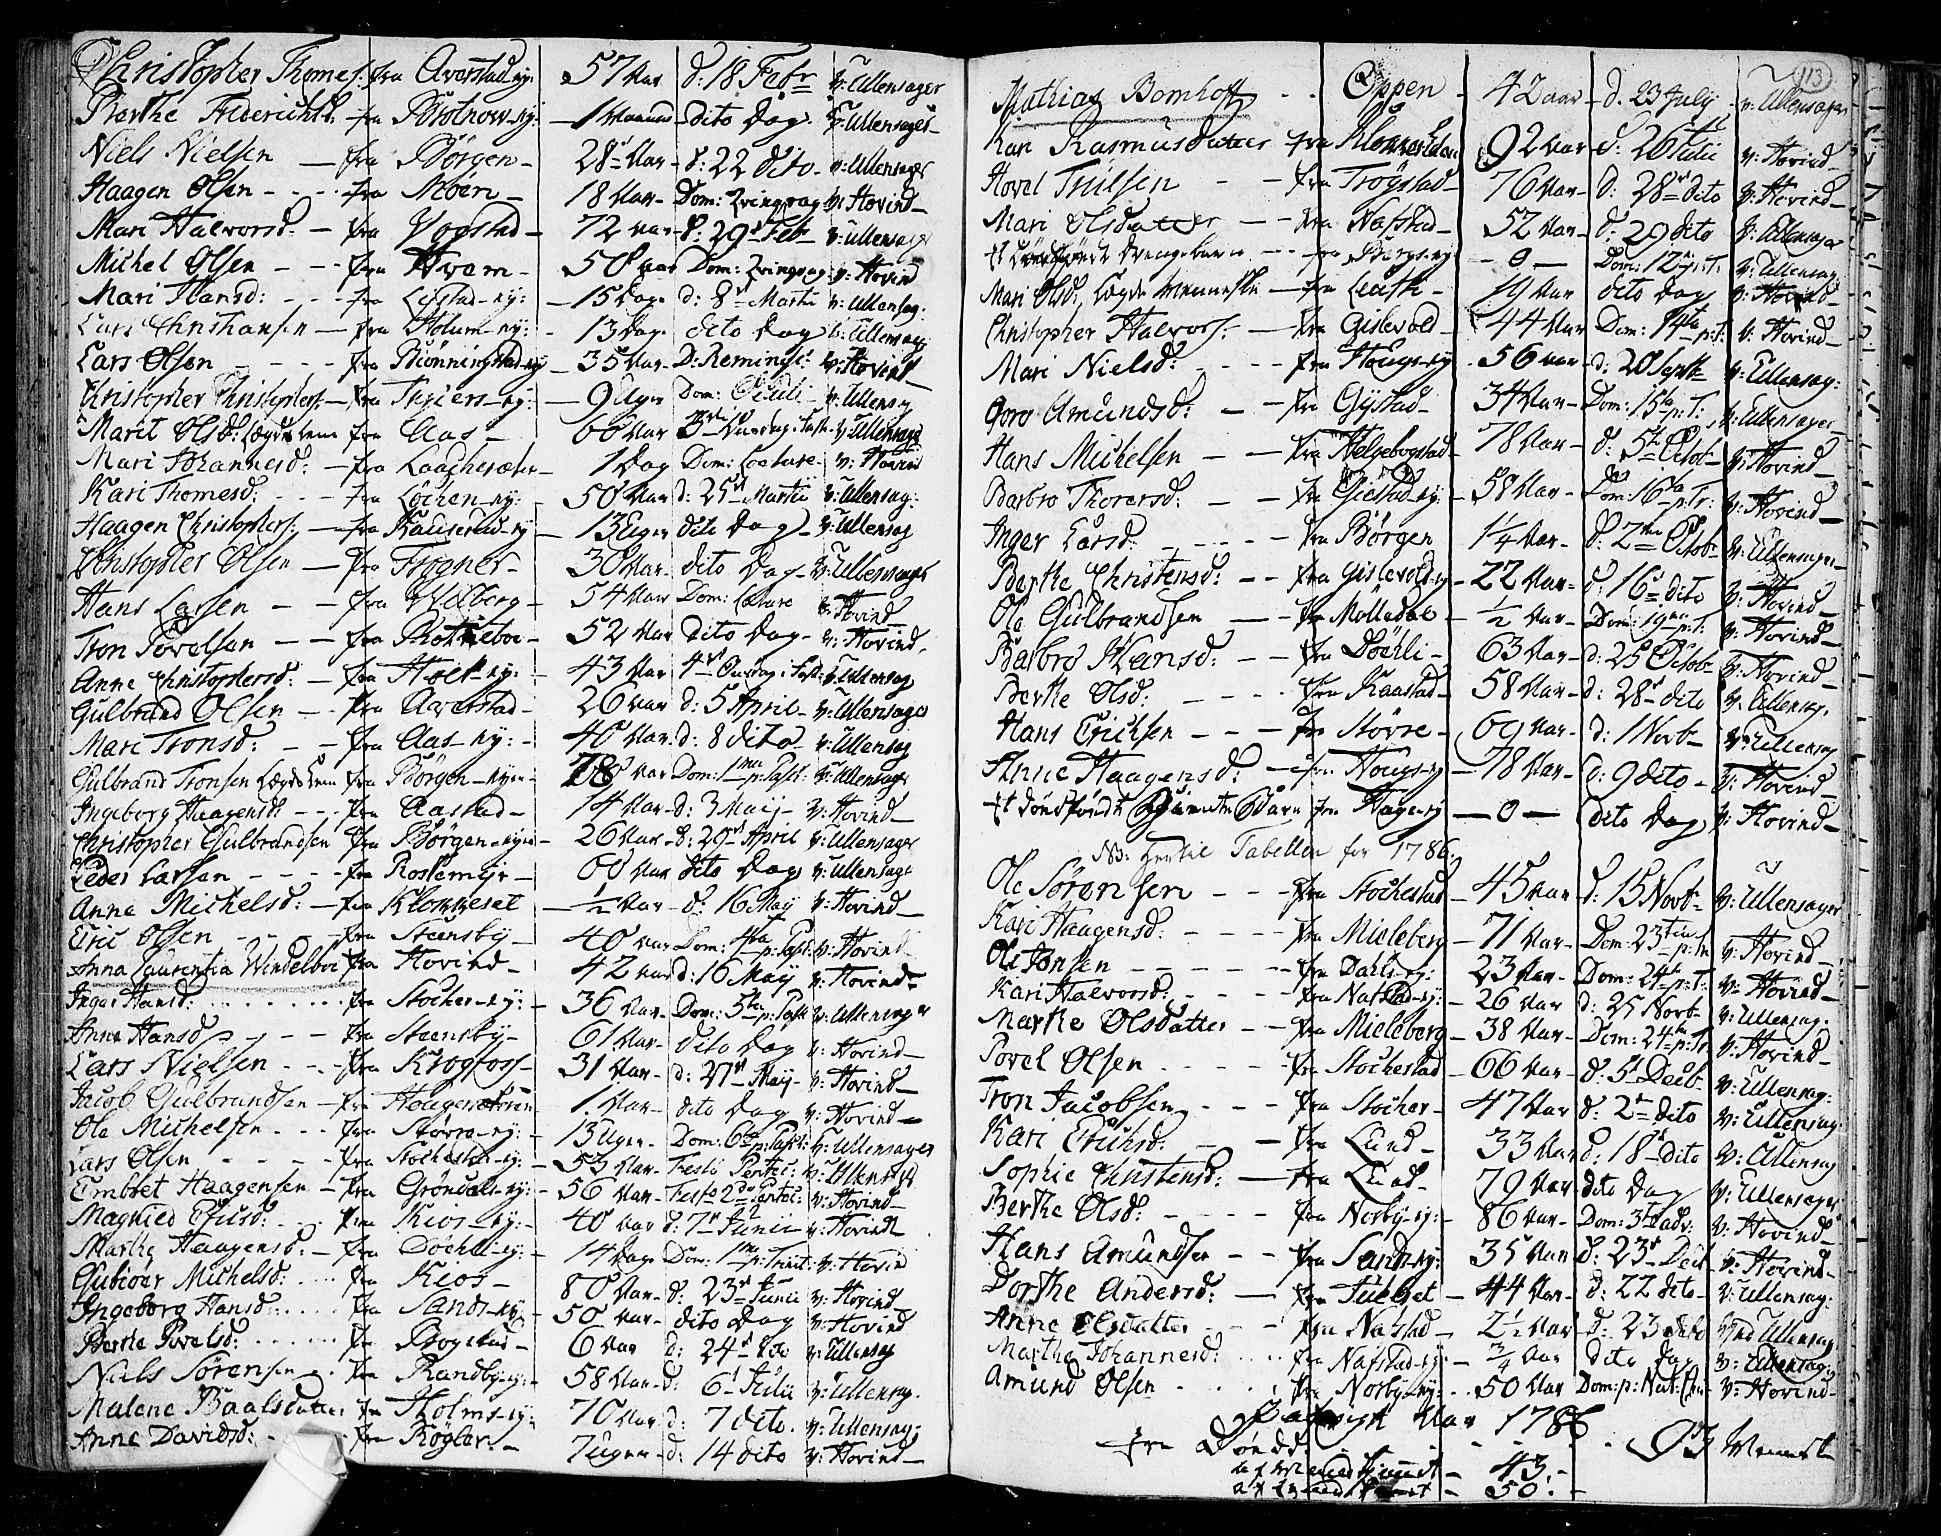 Christopher Thomes: fra Aurstad-ey: 57 Aar d: 18 Febr v: Ullensager
Berthe Frederichsd. fra 1 Maaned dito Dag v: Ullensager
Niels Nielsen fra Børgen 28 Aar d: 22 dito v: Ullensager
Haagen Olsen fra Moen 18 Aar Dom: 2vinqvag v: Hovind
Mari Halvorsd. fra Vogstad 72 Aar d: 29 Feb v: Ullensager
Michel Olsen fra Hvam 50 Aar Dom: 2vinqvag v: Hovind
Mari Hansd: fra Ligstad-ey: 15 Dage d: 8 Martii v: Ullensag:
Lars Christiansen fra Holum-ey: 13 Dage dito Dag v: Ullensag
Lars Olsen fra Rømmingstad-ey 35 Aar D: Reminisc: v: Hovind
Christopher Christophers: fra 9 Uger Dom: Oculi v: Ullensag
Marit Olsd: Lægdslem fra Aas 66 Aar 3 Onsdag i Fast: v: Ullensag
Mari Johannesd: fra Laachesæter 1 Dag Dom: Lætare v: Hovind
Kari Thomesd: fra Løchen-ey: 50 Aar d: 25 Martii v: Ullensag:
Haagen Christophers: fra Kauserud-ey 13 Uger dito Dag v: Ullensag
Christopher Olsen fra Fogner 30 Aar dito Dag v: Ullensager
Hans Larsen fra Wilberg 54 Aar Dom: Lætare v: Hovind
Tron Povelsen fra 52 Aar dito Dag v: Hovind
Anne Christophersd: fra Holt-ey: 43 Aar 4 Onsdag i Fast: v: Ullensag
Gulbrand Olsen fra Aurstad 26 Aar d: 5 April v: Ullensager
Mari Tronsd: fra Aas-ey: 40 Aar d: 8 dito v: Ullensag
Gulbrand Tronsen Lægdslem fra Børgen-eyen 78 Aar Dom: 1ma p: Pask: v: Ullensag:
Ingeborg Haagensd: fra Aastad 14 Aar d: 3 Maij v: Hovind
Christopher Gulbrandsen fra Børgen-eyen 26 Aar d: 29 April v: Ullensager
Peder Larsen fra Rostemyr 60 Aar dito Dag v: Ullensag
Anne Michelsd: fra Klokkeset ½ Aar d: 16 Maij v: Hovind
Eric Olsen fra Steensby 40 Aar Dom: 4ta p: Pask: v: Hovind
Anna Laurentia Windelboe fra Hovind 42 Aar d: 16 Maij v: Hovind
Inger Hansd: fra Stocher-ey: 36 Aar Dom: 5ta p: Pask v: Ullensager
Anne Hansd: fra Steensby 61 Aar dito Dag v: Hovind
Lars Nielsen fra Krogfoss 31 Aar d: 27 Maij v: Hovind
Jacob Gulbrandsen fra Haugersæteren 1 Aar dito Dag v: Hovind
Ole Michelsen fra Større-ey: 13 Uger Dom: 6ta p: Pask: v: Ullensager
Lars Olsen fra Stochestad-ey: 53 Aar Festo Pentec: v: Ullensag
Embret Haagensen fra Grøndal-ey: 56 Aar Festo 2 Pentec: v: Hovind
Magnild fra Kios-ey: 40 Aar d: 7 Junii v: Hovind
Marthe Haagensd: fra Døchli-ey: 14 Dage Dom: 1ma p: Trinit: v: Hovind
Gubiør Michelsd: fra Kios 80 Aar d: 23 Junii v: Hovind
Ingeborg Hansd: fra Sands-ey: 50 Aar dito Dag v: Hovind
Berthe Povelsd: fra Bogstad 6 Aar d: 24 dito v: Ullensag
Niels Sørensen fra Randby-ey: 58 Aar d: 6 Julii v: Ullensag.
Malene Paalsdatter fra Holms-ey: 70 Aar d: 7 dito v: Ullensag:
Anne Davidsd: fra Røgler 7 Uger d: 14 dito v: Hovind
113
Mathias Bomhoff Oppen 42 aar d. 23 July v: Ullensager
Kari Rasmusdatter fra 92 Aar d. 26 Julii v: Hovind
Hovel Truelsen fra Trøgstad 76 Aar d: 28 dito v: Hovind
Mari Olsdatter fra Nafstad 52 Aar d: 29 dito v: Ullensager
Et dødfødt Drengebarn fra Bergs-ey 0 Dom: 12 p: T: v: Ullensag.
Mari Olsd: Lægds Menneske fra 19 Aar dito Dag v: Hovind
Christopher Halvors: fra Gislevold 44 Aar Dom: 14ta p: T: v: Hovind
Mari Nielsd: fra Haugs-ey 56 Aar d: 20 Septb v: Ullensag:
Goro Amundsd: fra Gystad 34 Aar Dom: 15ta p: T: v: Ullensager
Hans Michelsen fra Helgebogstad 78 Aar d: 5t Octob v: Hovind
Barbro Thorersd: fra Gielstad-ey: 58 Aar Dom: 16ta p: Tr: v: Hovind
Inger Larsd: fra Børgen 1¼ Aar d: 7 Octob v: Ullensager
Berthe Christensd: fra Gislevold-ey 22 Aar d: 16 dito v: Hovind
Ole Gulbrandsen fra Molledal ½ Aar Dom: 19 p: T: v: Hovind
Barbro Hansd: fra Døchli 63 Aar d: 25 Octob v: Hovind
Berthe Olsd: fra Kaastad 58 Aar d: 28 dito v: Ullensag.
Hans Erichsen fra Større 69 Aar d: 1 Novb v: Ullensag
Anne Haagensd: fra Haugs-ey 78 Aar d: 9 dito v: Hovind
Et dødfødt Barn fra Hage-ey 0 dito Dag v: Hovind
NB: hertil Tabellen for 1786.
Ole Sørensen fra Stochestad 45 Aar d: 15 Novb v: Ullensager
Kari Haagensd: fra Mieleberg 71 Aar Dom: 23 p: tr v: Hovind
Ole Jonsen fra Dahls-ey: 23 Aar Dom: 24 p: T: v: Hovind
Kari Halvorsd: fra Nafstad-ey: 26 Aar d: 25 Novb v: Ullensag:
Marthe Olsdatter fra Mieleberg 38 Aar Dom: 24 p: Tr v: Hovind
Povel Olsen fra Stochestad 66 Aar d: 5t Decb v: Ullensag:
Tron Jacobsen fra Stocher 47 Aar d: 2 dito v: Ullensag:
Kari Erichsd: fra Lund 33 Aar d: 18 dito v: Ullensag
Sophie Christensd: fra Lund 79 Aar dito Dag v: Ullensager
Berthe Olsd: fra Norby-ey: 86 Aar Dom: 3t adv: v: Hovind
Hans Amundsen fra Sands-ey: 35 Aar d: 23 Decb v: Hovind
Dorthe Andersd: fra 44 Aar d: 22 dito v: Ullensag:
Anne Olsdatter fra Nafstad 2½ Aar d: 23 dito ved Ullensag
Marthe Johannesd: fra Nafstad-ey: ¾ Aar dito Dag v: Ullensag:
Amund Olsen fra Norby-ey: 50 Aar Dom: p: Nat: Chr: v: Hovind
Aar 1786
93
43
50